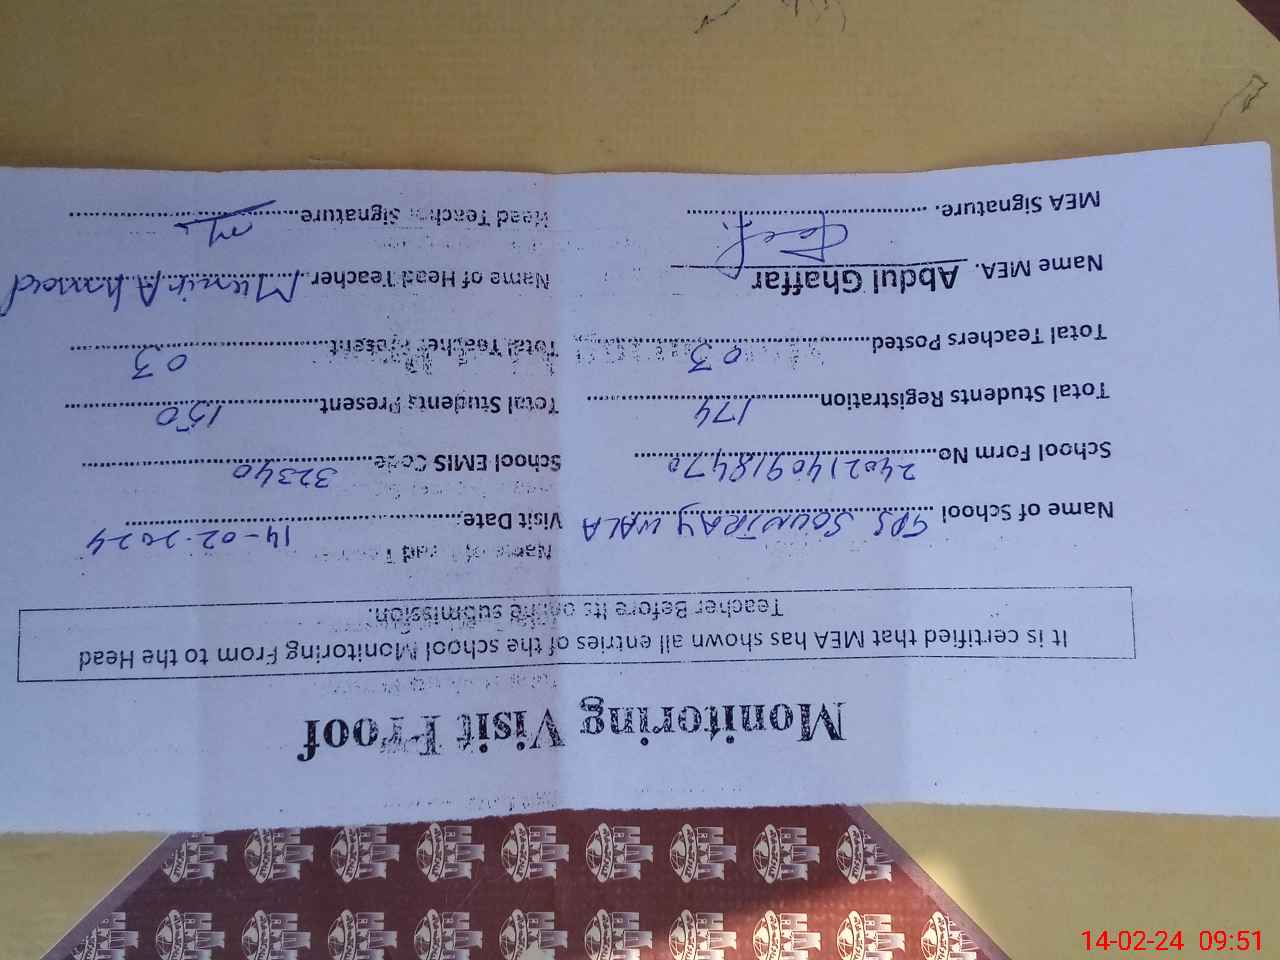 Monitoring Visit Proof
It is certified that MEA has shown all entries of the school Monitoring From to the Head
Teacher Before its online submission.
Name of School GPS SOUNTRAY WALA Visit Date: 14-02-2024
School Form No 2402140918470 School EMIS Code 32340
Total Students Registration 174 Total Students Present 150
Total Teachers Posted 03 Total Teacher Present 03
Name MEA. Abdul Ghaffar Name of Head Teacher. Munir Ahmed
MEA Signature. Head Teacher Signature
14-02-24 09:51